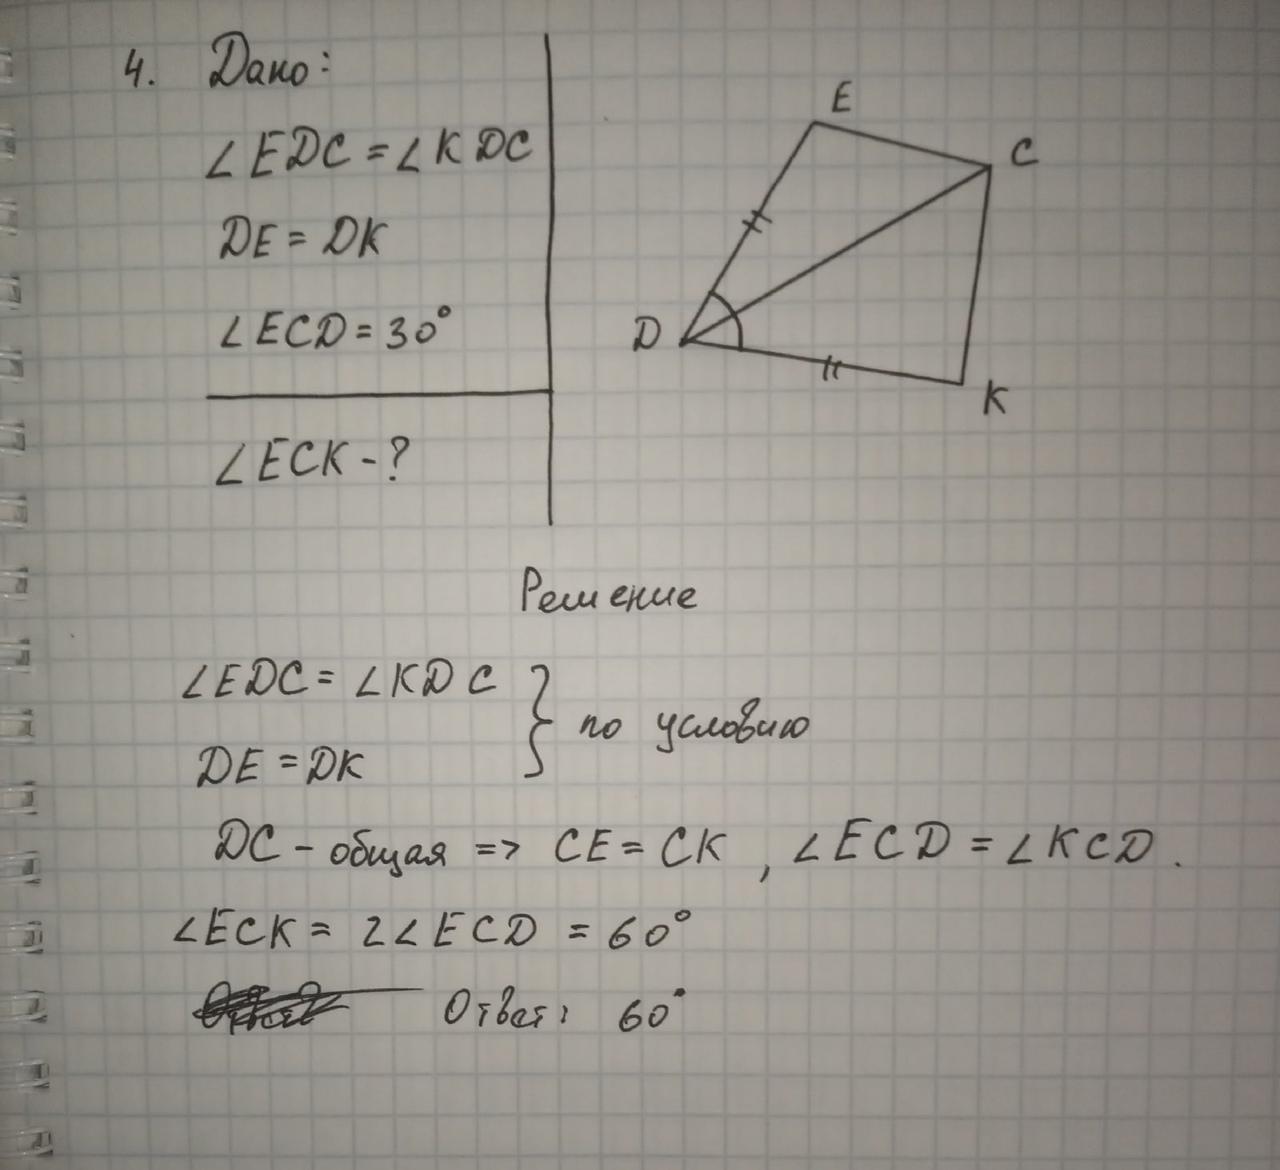 4. Дано:
∠EDC = ∠KDC
DE = DK
∠ECD = 30°
∠ECK - ?
E
C
D
K
Решение
∠EDC = ∠KDC
DE = DK
} по условию
DC - общая => CE = CK , ∠ECD = ∠KCD .
∠ECK = 2∠ECD = 60°
Ответ: 60°